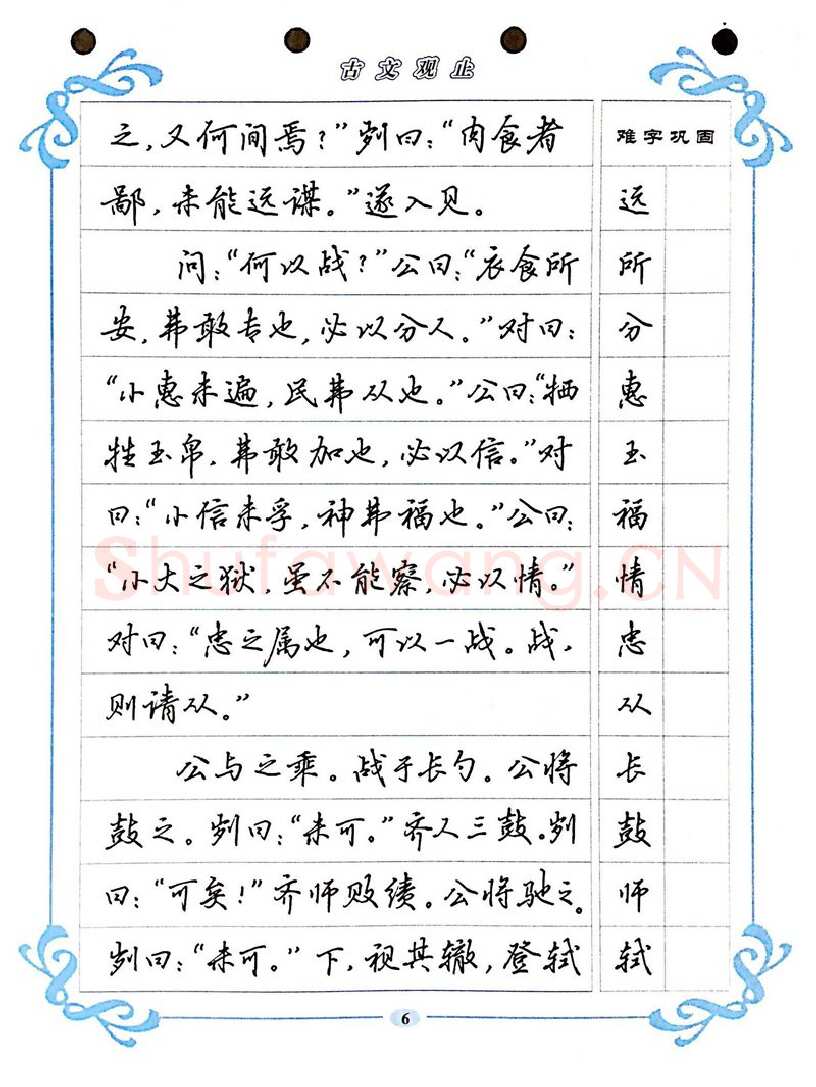 古文观止
之，又何间焉？”刿曰：“肉食者
鄙，未能远谋。”遂入见。
问：“何以战？”公曰：“衣食所
安，弗敢专也，必以分人。”对曰：
“小惠未遍，民弗从也。”公曰：“牺
牲玉帛，弗敢加也，必以信。”对
曰：“小信未孚，神弗福也。”公曰：
“小大之狱，虽不能察，必以情。”
对曰：“忠之属也，可以一战。战，
则请从。”
公与之乘。战于长勺。公将
鼓之。刿曰：“未可。”齐人三鼓。刿
曰：“可矣！”齐师败绩。公将驰之。
刿曰：“未可。”下，视其辙，登轼
难字巩固
远
所
分
惠
玉
福
情
忠
从
长
鼓
师
轼
Shufawang.CN
6